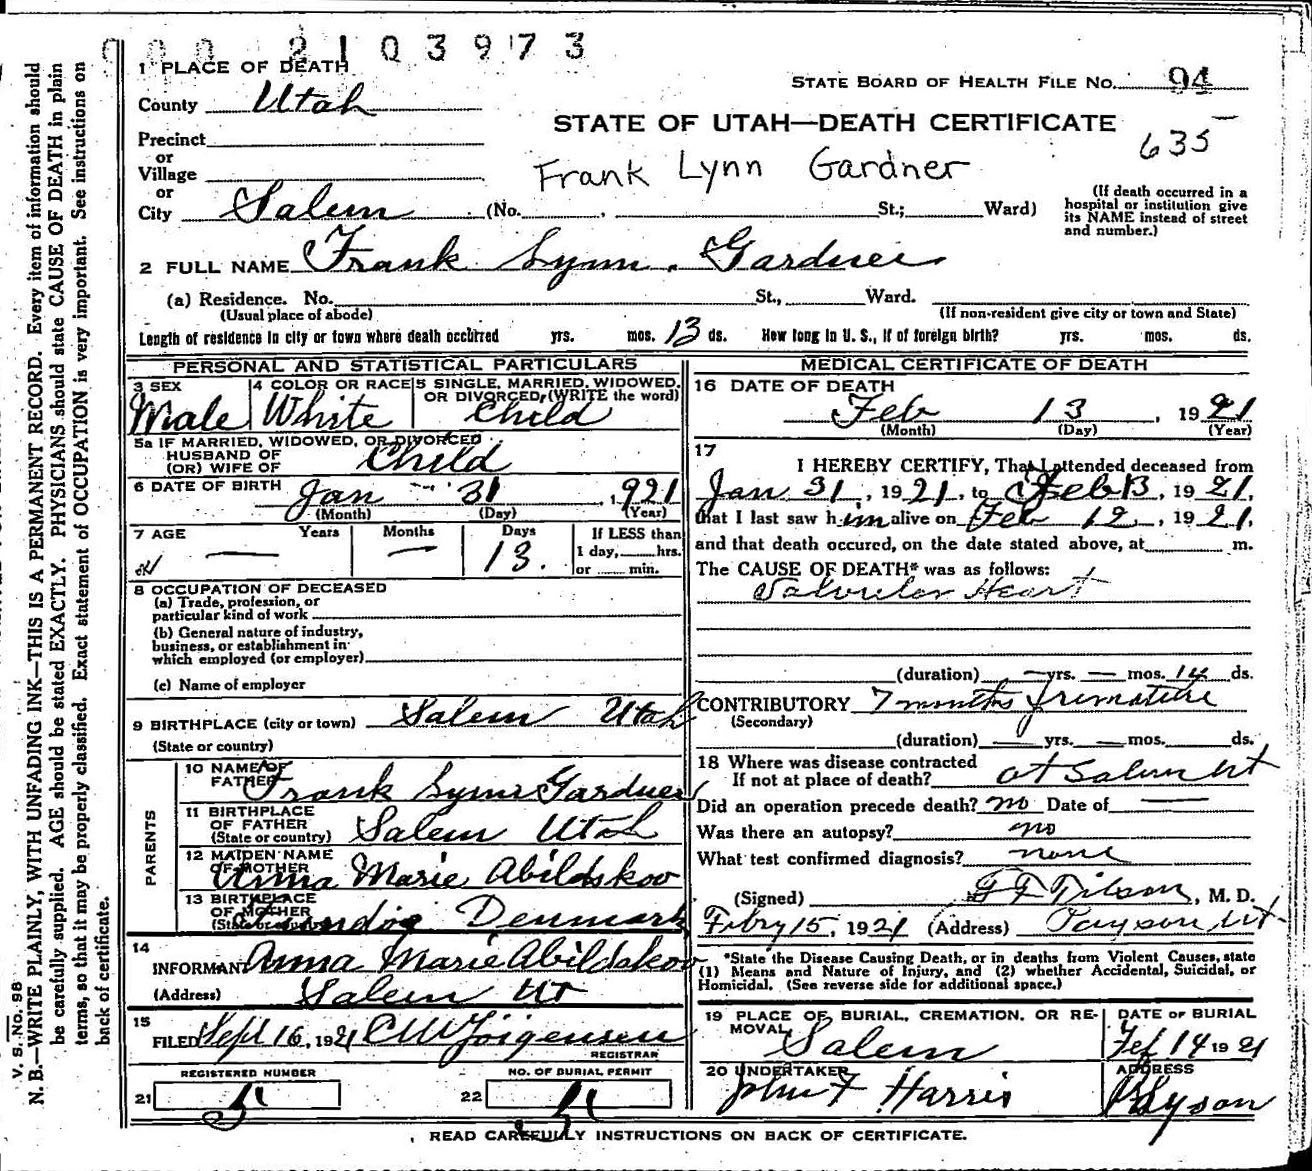 000 2103973
1 PLACE OF DEATH
STATE BOARD OF HEALTH FILE NO. 94
County Utah
STATE OF UTAH—DEATH CERTIFICATE
635
Precinct
or
Village
Frank Lynn Gardner
or
City Salem (No. , St.; Ward)
(If death occurred in a
hospital or institution give
its NAME instead of street
and number.)
2 FULL NAME Frank Lynn Gardner
(a) Residence. No. St., Ward.
(Usual place of abode) (If non-resident give city or town and State)
Length of residence in city or town where death occurred yrs. mos. 13 ds. How long in U. S., if of foreign birth? yrs. mos. ds.
PERSONAL AND STATISTICAL PARTICULARS
3 SEX Male
4 COLOR OR RACE White
5 SINGLE, MARRIED, WIDOWED,
OR DIVORCED, (WRITE the word)
Child
5a IF MARRIED, WIDOWED, OR DIVORCED
HUSBAND OF
(OR) WIFE OF Child
6 DATE OF BIRTH Jan 31, 1921
(Month) (Day) (Year)
7 AGE Years Months Days If LESS than
— — 13. 1 day, hrs.
or min.
8 OCCUPATION OF DECEASED
(a) Trade, profession, or
particular kind of work
(b) General nature of industry,
business, or establishment in
which employed (or employer)
(c) Name of employer
9 BIRTHPLACE (city or town) Salem Utah
(State or country)
PARENTS
10 NAME OF
FATHER Frank Lynn Gardner
11 BIRTHPLACE
OF FATHER Salem Utah
(State or country)
12 MAIDEN NAME
OF MOTHER Anna Marie Abildskov
13 BIRTHPLACE
OF MOTHER Denmark
(State or country)
14
INFORMANT Anna Marie Abildskov
(Address) Salem Ut
15
FILED Sept 16, 1921 C W Jorgensen
REGISTRAR
REGISTERED NUMBER NO. OF BURIAL PERMIT
21 22
MEDICAL CERTIFICATE OF DEATH
16 DATE OF DEATH
Feb 13, 1921
(Month) (Day) (Year)
17
I HEREBY CERTIFY, That I attended deceased from
Jan 31, 1921, to Feb 13, 1921,
that I last saw him alive on Feb 12, 1921,
and that death occured, on the date stated above, at m.
The CAUSE OF DEATH* was as follows:
Valvular Heart
(duration) — yrs. — mos. 14 ds.
CONTRIBUTORY 7 months premature
(Secondary)
(duration) — yrs. — mos. ds.
18 Where was disease contracted
If not at place of death? at Salem Ut
Did an operation precede death? no Date of —
Was there an autopsy? no
What test confirmed diagnosis? none
(Signed) Tilson, M. D.
Febry 15, 1921 (Address) Payson Ut
*State the Disease Causing Death, or in deaths from Violent Causes, state
(1) Means and Nature of Injury, and (2) whether Accidental, Suicidal, or
Homicidal. (See reverse side for additional space.)
19 PLACE OF BURIAL, CREMATION, OR RE-
MOVAL Salem
DATE OF BURIAL
Feb 14 1921
20 UNDERTAKER John F Harris
ADDRESS
Payson
READ CAREFULLY INSTRUCTIONS ON BACK OF CERTIFICATE.
V. S. No. 98
N. B.—WRITE PLAINLY, WITH UNFADING INK—THIS IS A PERMANENT RECORD. Every item of information should
be carefully supplied. AGE should be stated EXACTLY. PHYSICIANS should state CAUSE OF DEATH in plain
terms, so that it may be properly classified. Exact statement of OCCUPATION is very important. See instructions on
back of certificate.